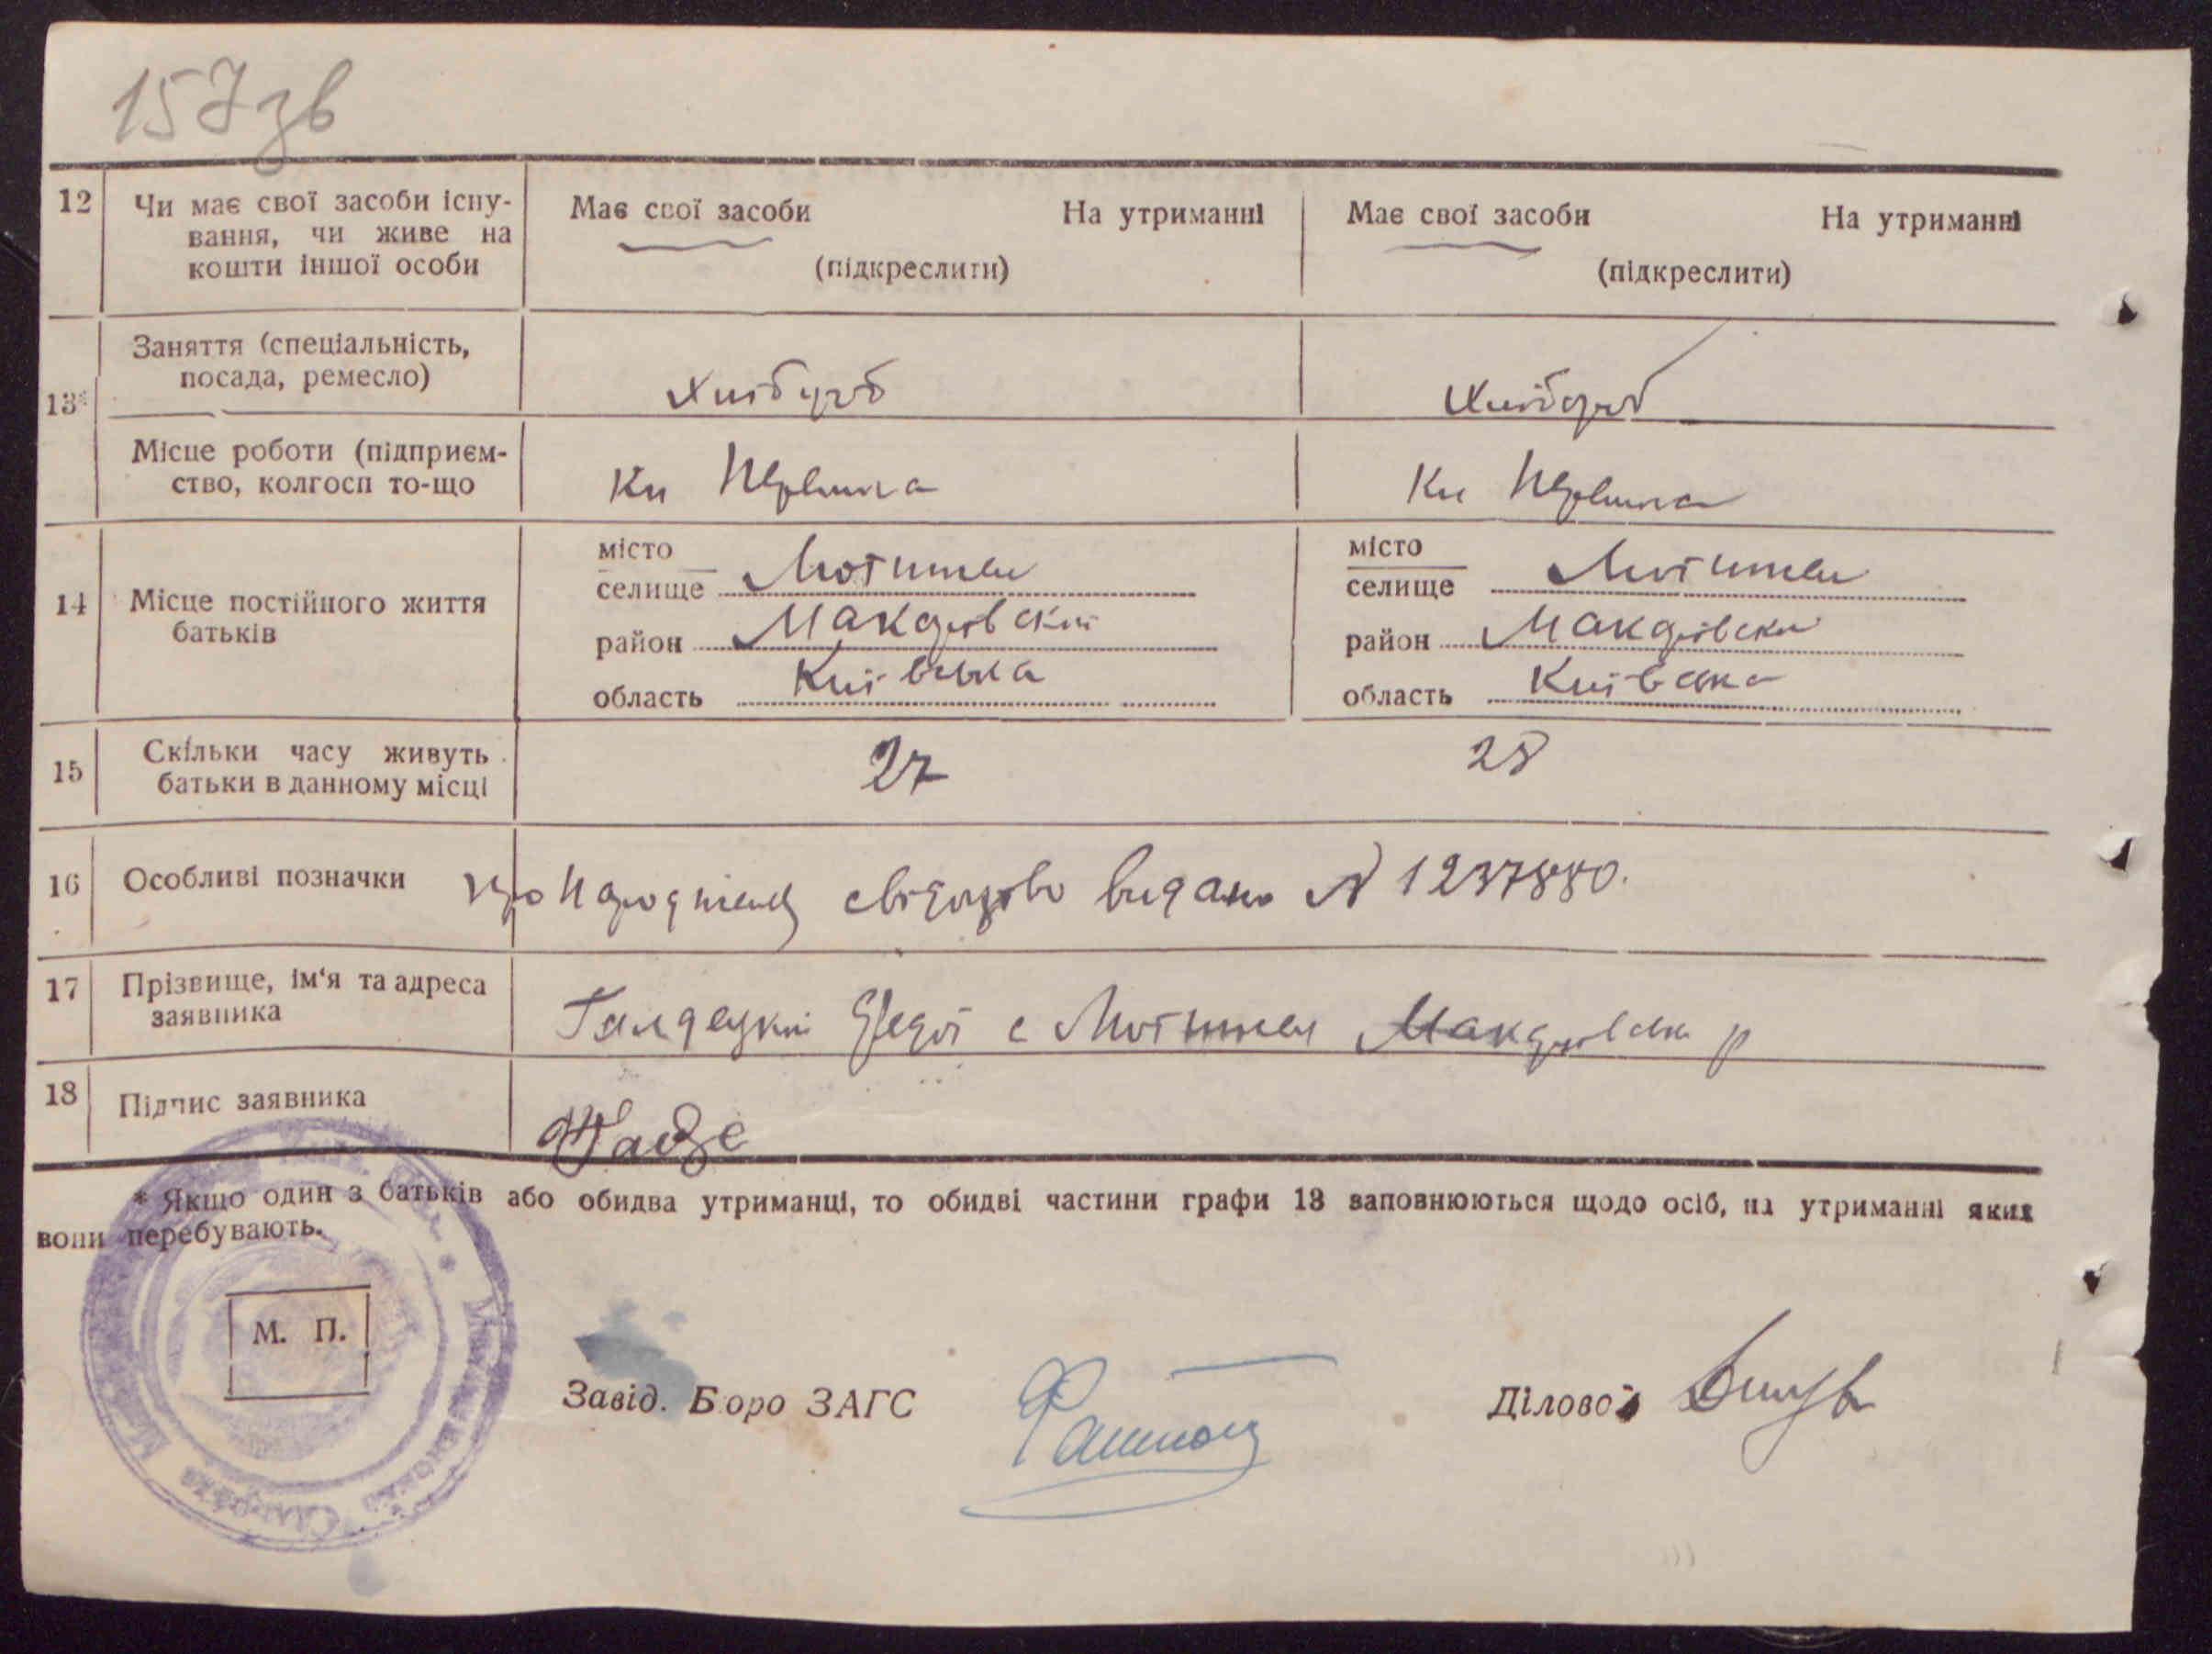 157зв
12 Чи має свої засоби існу- Має свої засоби На утриманні Має свої засоби На утриманні
вання, чи живе на
кошти іншої особи (підкреслити) (підкреслити)
13* Заняття (спеціальність,
посада, ремесло) Хлібороб Хлібороб
Місце роботи (підприєм-
ство, колгосп то-що
14 Місце постійного життя
батьків
місто
селище Мотижин
район Макарівский
область Київська
місто
селище Мотижин
район Макарівски
область Київська
15 Скільки часу живуть 27 28
батьки в данному місці
16 Особливі позначки про народженя свідоцтво видано № 1237880.
17 Прізвище, ім'я та адреса
заявника с Мотижин Макарівськ р
18 Підпис заявника
* Якщо один з батьків або обидва утриманці, то обидві частини графи 13 заповнюються щодо осіб, на утриманні яких
вони перебувають.
М. П.
Завід. Бюро ЗАГС Діловод